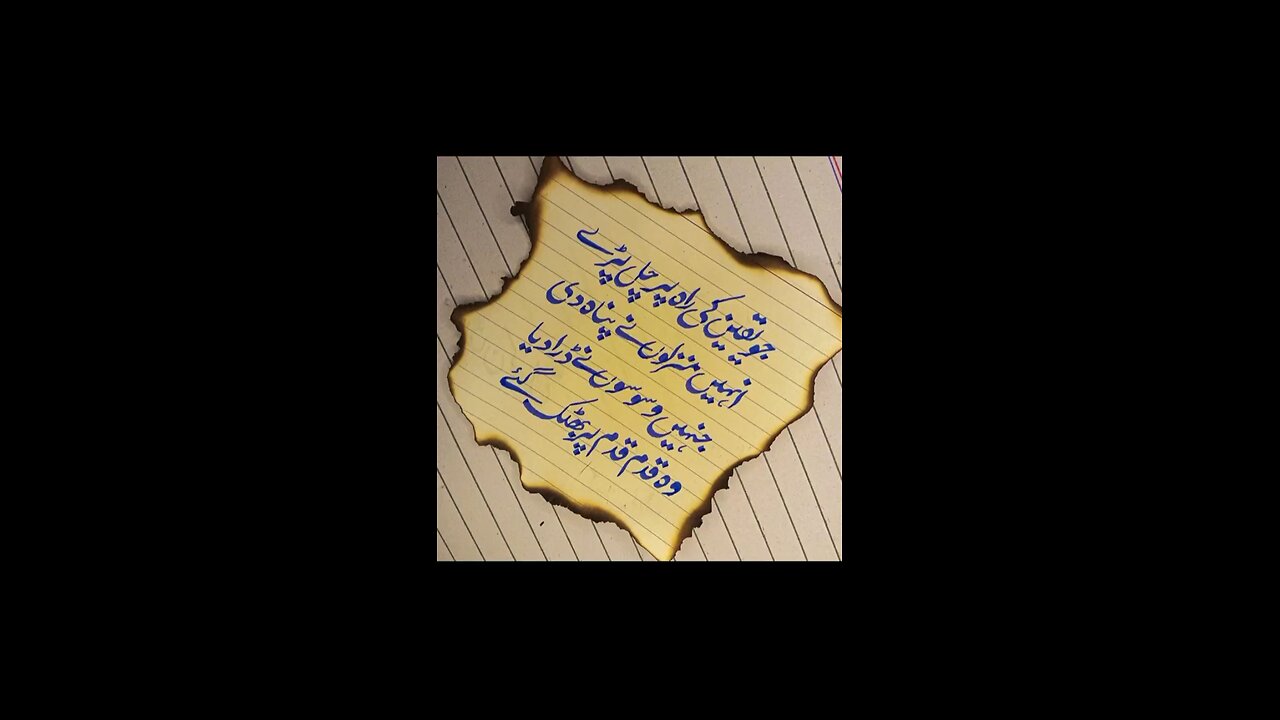 جو یقین کی راہ پر چل پڑے
انہیں منزلوں نے پناہ دی
جنہیں وسوسوں نے ڈرا دیا
وہ قدم قدم پر بھٹک گئے